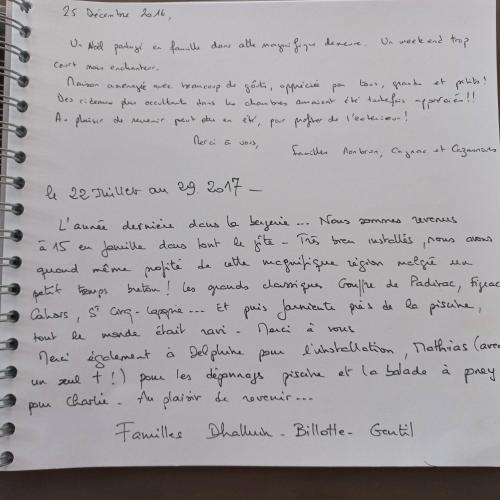 25 Décembre 2016,
Un Noël partagé en famille dans cette magnifique demeure. Un week end trop
court mais enchanteur.
Maison aménagée avec beaucoup de goûts, appréciée par tous, grands et petits!
Des rideaux plus occultant dans les chambres auraient été toutefois apprécié!!
Au plaisir de revenir peut être en été, pour profiter de l'extérieur!
Merci à vous,
Familles et
le 22 Juillet au 29.2017 -
L'année dernière dans la bergerie... Nous sommes revenus
à 15 en famille dans tout le gîte - Très bien installés, nous avons
quand même profité de cette magnifique région malgré un
petit temps breton! Les grands classiques Gouffre de Padirac, Figeac
Cahors, St Cirq-Lapopie ... Et puis farniente près de la piscine,
tout le monde était ravi - Merci à vous
Merci également à Delphine pour l'installation, Mathias (avec
un seul t!) pour les dépannages piscine et la balade à poney
pour Charlie - Au plaisir de revenir...
Familles Dhalluin - Billotte - Gentil